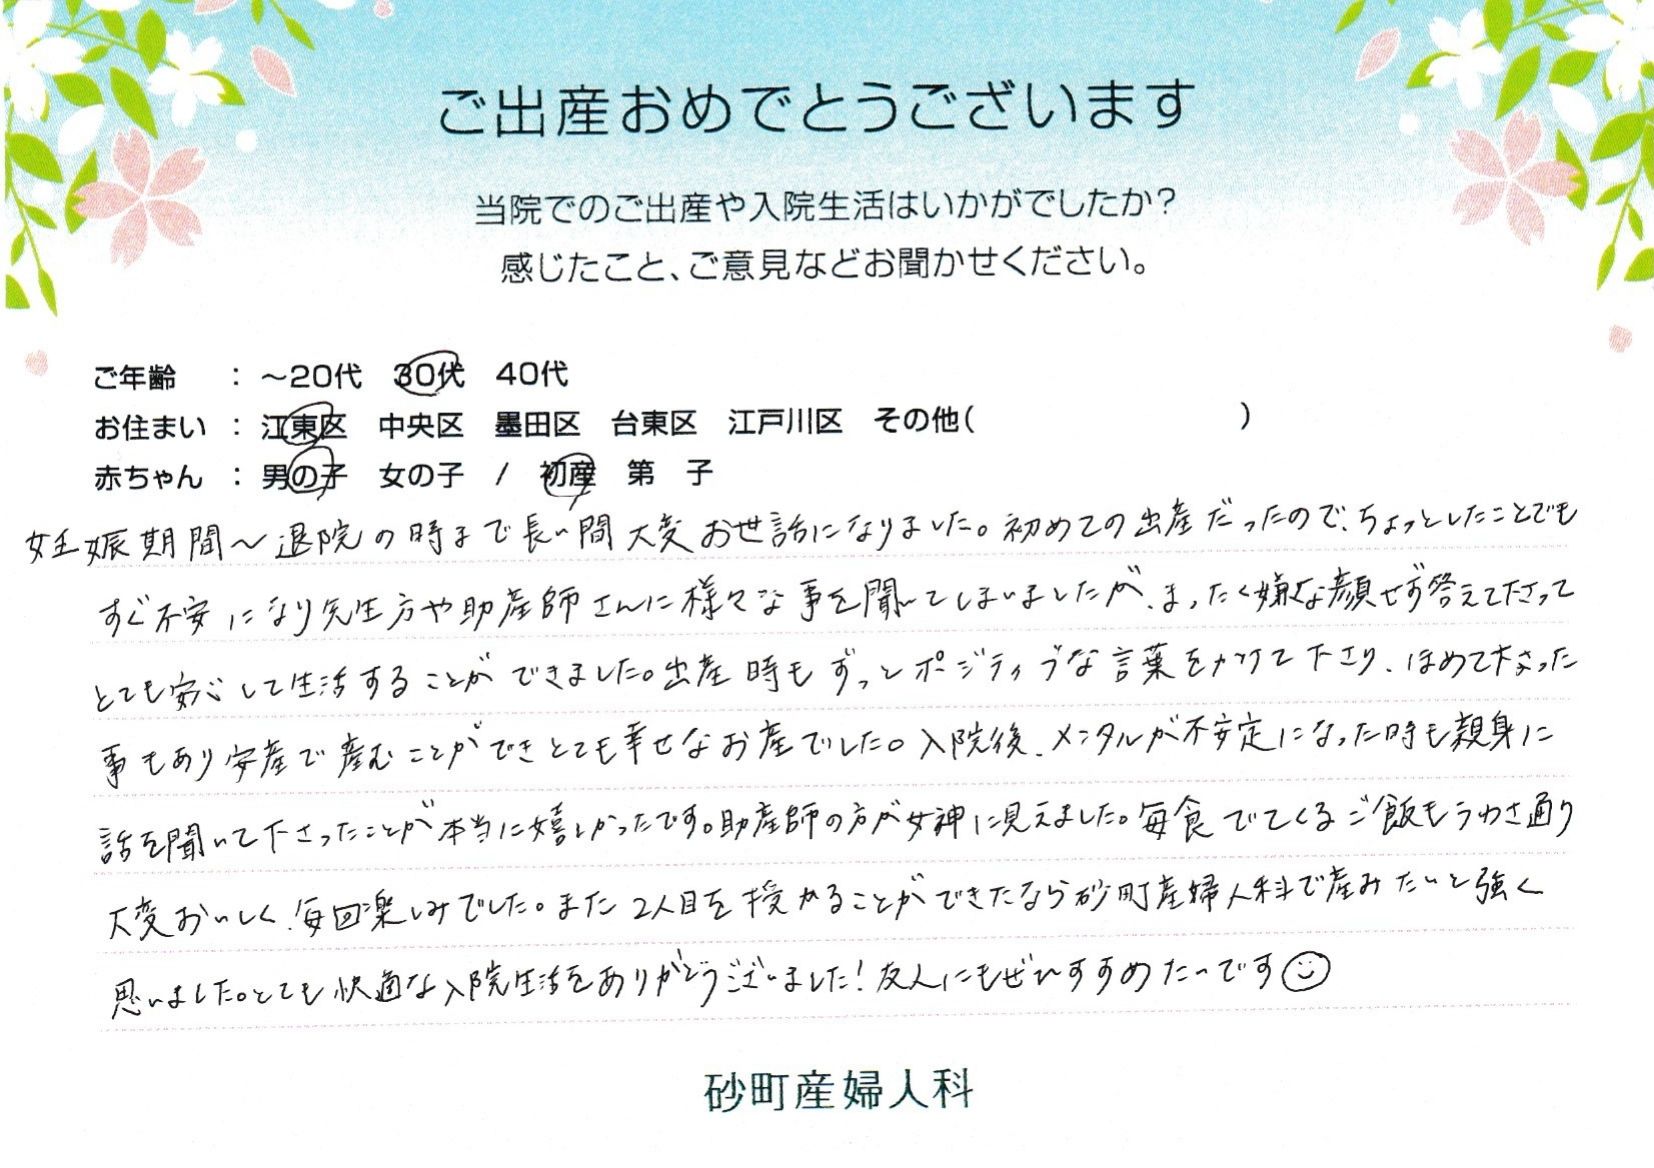 ご出産おめでとうございます
当院でのご出産や入院生活はいかがでしたか?
感じたこと、ご意見などお聞かせください。
ご年齢 : ～20代 30代 40代
お住まい : 江東区 中央区 墨田区 台東区 江戸川区 その他( )
赤ちゃん : 男の子 女の子 / 初産 第 子
妊娠期間～退院の時まで長い間大変お世話になりました。初めての出産だったので、ちょっとしたことでも
すぐ不安になり先生方や助産師さんに様々な事を聞いてしまいましたが、まったく嫌な顔せず答えて下さって
とても安心して生活することができました。出産時もずっとポジティブな言葉をかけて下さり、ほめて下さった
事もあり安産で産むことができとても幸せなお産でした。入院後、メンタルが不安定になった時も親身に
話を聞いて下さったことが本当に嬉しかったです。助産師の方が女神に見えました。毎食でてくるご飯もうわさ通り
大変おいしく、毎回楽しみでした。また2人目を授かることができたなら砂町産婦人科で産みたいと強く
思いました。とても快適な入院生活をありがとうございました!友人にもぜひすすめたいです☺
砂町産婦人科